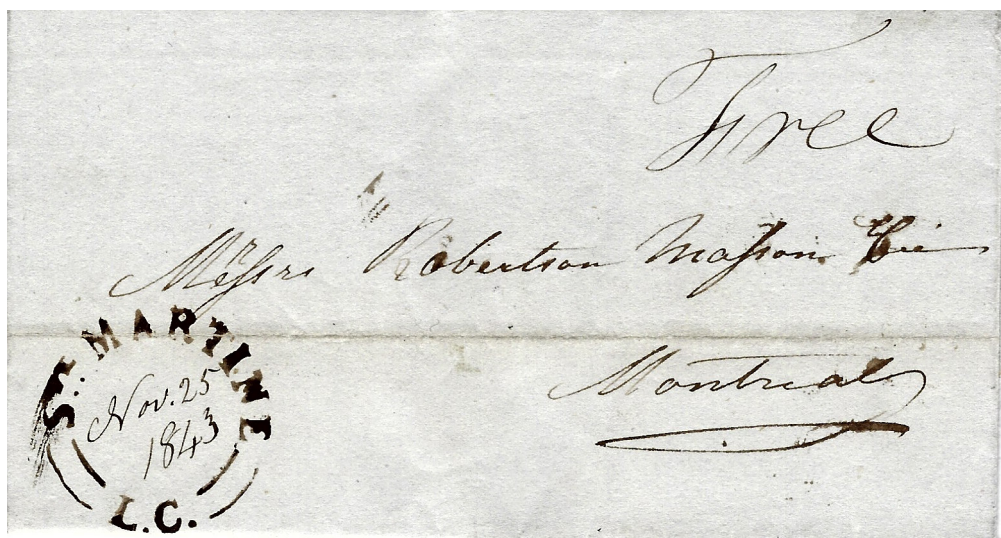 Free
Messrs Robertson Masson Cie
Montreal
ST. MARTINE
Nov. 25
1843
L.C.